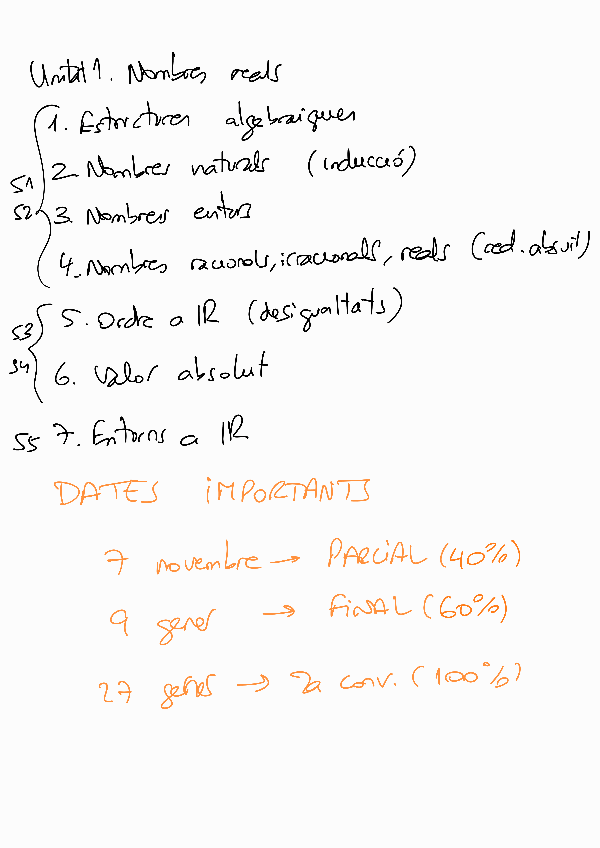 Unitat 1. Nombres reals
1. Estructures algebraiques
S1 2. Nombres naturals (inducció)
S2 3. Nombres enters
4. Nombres racionals, irracionals, reals
S3 5. Ordre a IR (desigualtats)
S4 6. Valor absolut
S5 7. Entorns a IR
DATES IMPORTANTS
7 novembre → PARCIAL (40%)
9 gener → FINAL (60%)
27 gener → 2a conv. (100%)